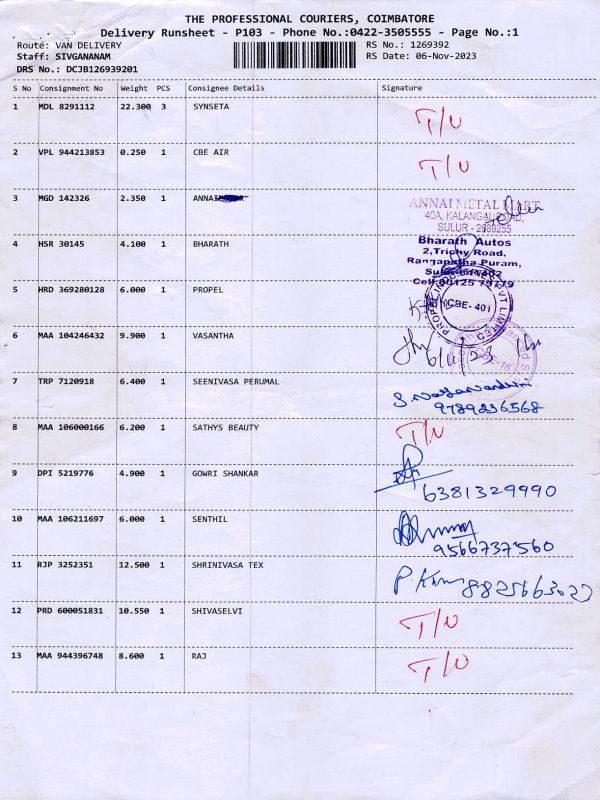 THE PROFESSIONAL COURIERS, COIMBATORE
Delivery Runsheet - P103 - Phone No.:0422-3505555 - Page No.:1
Route: VAN DELIVERY RS No.: 1269392
Staff: SIVGANANAM RS Date: 06-Nov-2023
DRS No.: DCJB126939201
S No Consignment No Weight PCS Consignee Details Signature
1 MDL 8291112 22.300 3 SYNSETA T/U
2 VPL 944213853 0.250 1 CBE AIR T/U
3 MGD 142326 2.350 1 ANNAI
ANNAI METAL MART
40A, KALANGAL ROAD,
SULUR -
4 HSR 30145 4.100 1 BHARATH
Bharath Autos
2,Trichy Road,
Ranganatha Puram,
Sulur-641402
5 HRD 369280128 6.000 1 PROPEL
CBE- 401
6 MAA 104246432 9.900 1 VASANTHA
6/11/23
7 TRP 7120918 6.400 1 SEENIVASA PERUMAL
9789836568
8 MAA 106000166 6.200 1 SATHYS BEAUTY T/U
9 DPI 5219776 4.900 1 GOWRI SHANKAR
6381329990
10 MAA 106211697 6.000 1 SENTHIL
9566737560
11 RJP 3252351 12.500 1 SHRINIVASA TEX
12 PRD 600051831 10.550 1 SHIVASELVI T/U
13 MAA 944396748 8.600 1 RAJ T/U